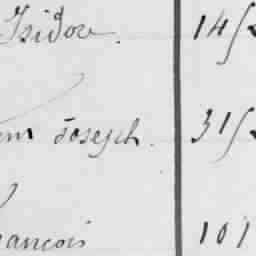 Isidore. 14
Joseph. 31
ancois 101